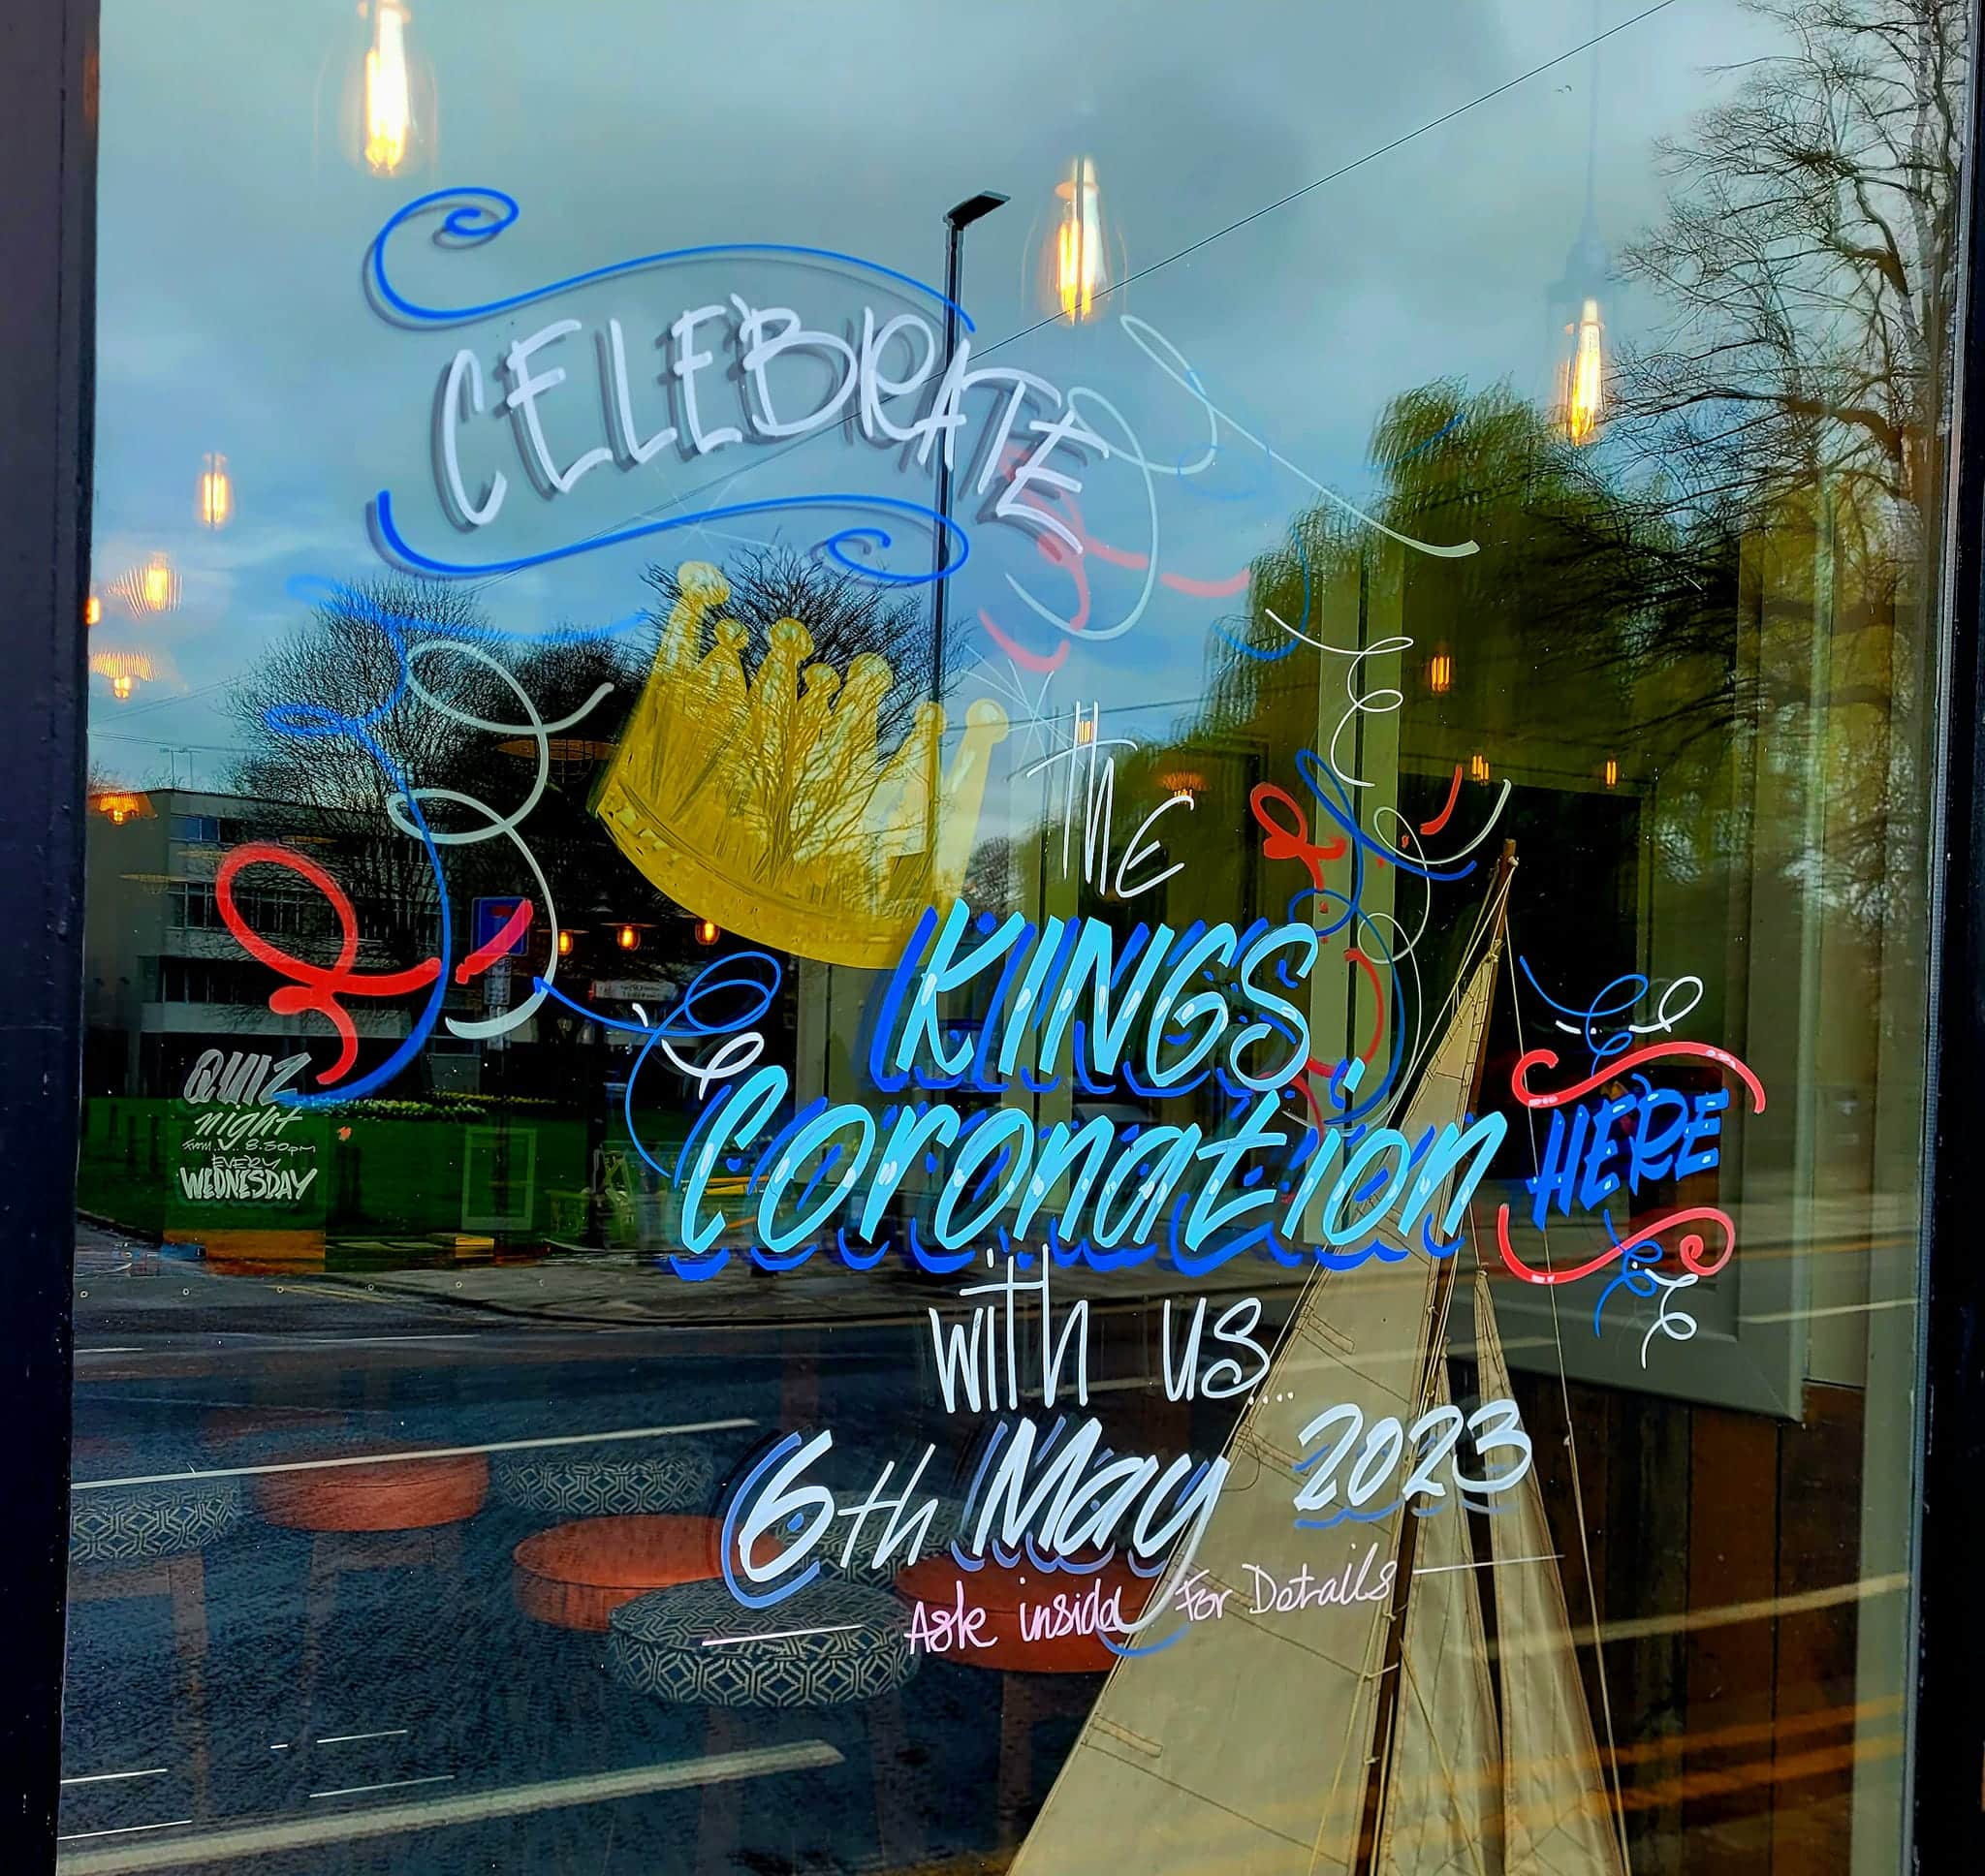 CELEBRATE
THE
KINGS
Coronation
HERE
with us...
6th May 2023
Ask inside For Details
QUIZ
night
From... 8.30pm
EVERY
WEDNESDAY